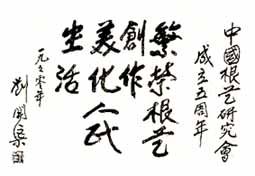 中國根艺研究會
成立五周年
繁榮根艺
創作
美化人民
生活
一九九零年
劉開渠